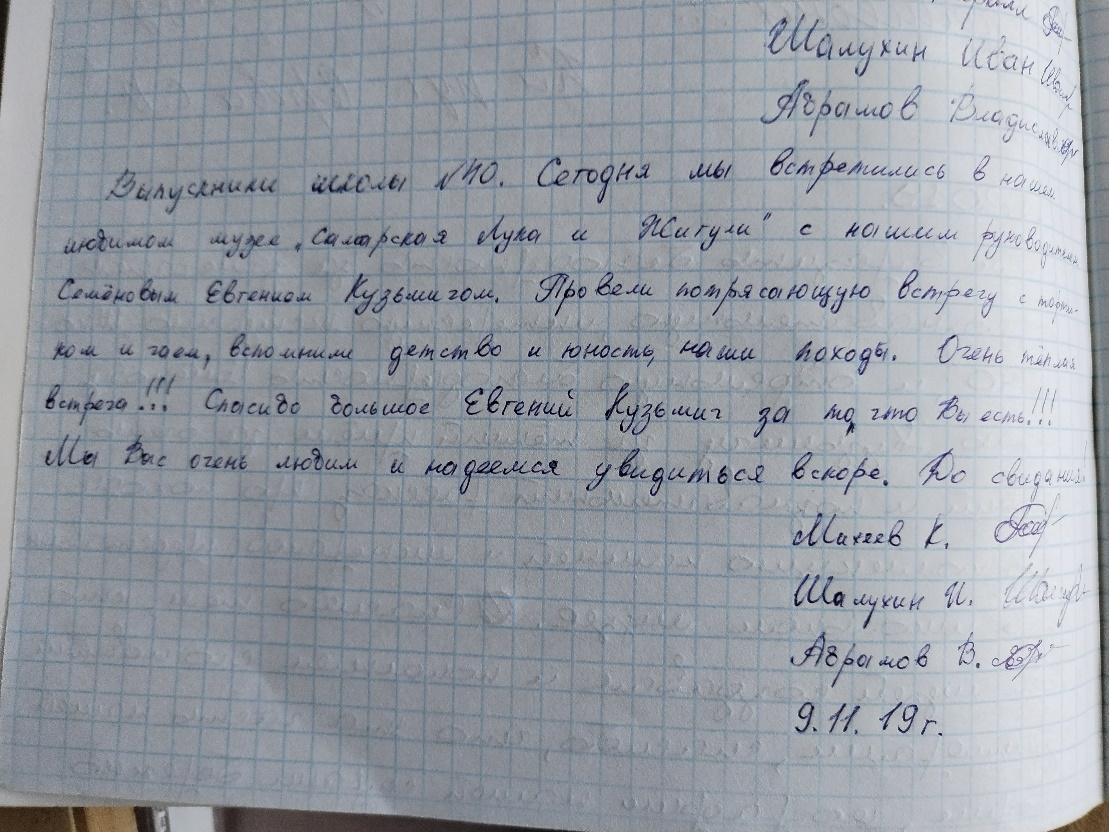 Шалухин Иван
Абрамов Владислав
Выпускники школы №40. Сегодня мы встретились в нашем
любимом музее „Самарская Лука и Жигули" с нашим руководителем
Семёновым Евгением Кузьмичом. Провели потрясающую встречу с
ком и чаем, вспомнили детство и юность, наши походы. Очень тёплая
встреча!!! Спасибо большое Евгений Кузьмич за то, что Вы есть!!!
Мы Вас очень любим и надеемся увидиться вскоре. До свидания!
Михеев К.
Шалухин И.
Абрамов В.
9.11.19г.